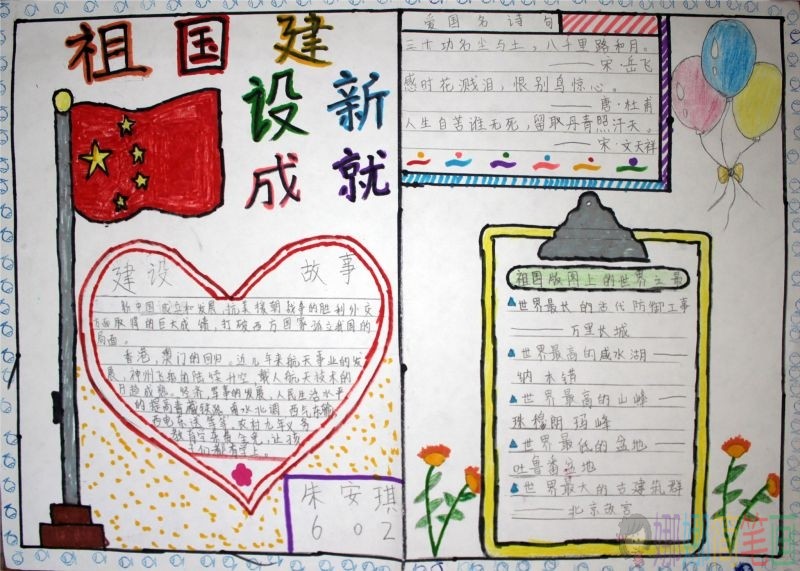 祖国建
设新
成就
爱国名诗句
三十功名尘与土,八千里路和月。
——宋·岳飞
感时花溅泪,恨别鸟惊心。
——唐·杜甫
人生自苦谁无死,留取丹青照汗天。
——宋·文天祥
建设 故事
新中国成立和发展,抗美援朝战争的胜利外交
方面取得的巨大成绩,打破西方国家孤立我国的
局面。
香港、澳门的回归。近几年来航天事业的发
展,神州飞船的陆续升空,载人航天技术的
日趋成熟。经济、军事的发展,人民生活水平
的提高青藏铁路 南水北调 西气东输
西电东送等等 农村九年义务
教育学杂费全免,让孩
们都有学上。
朱安琪
602
祖国版图上的世界之最
世界最长的古代防御工事
——万里长城
世界最高的咸水湖——
纳木错
世界最高的山峰——
珠穆朗玛峰
世界最低的盆地——
吐鲁番盆地
世界最大的古建筑群
——北京故宫